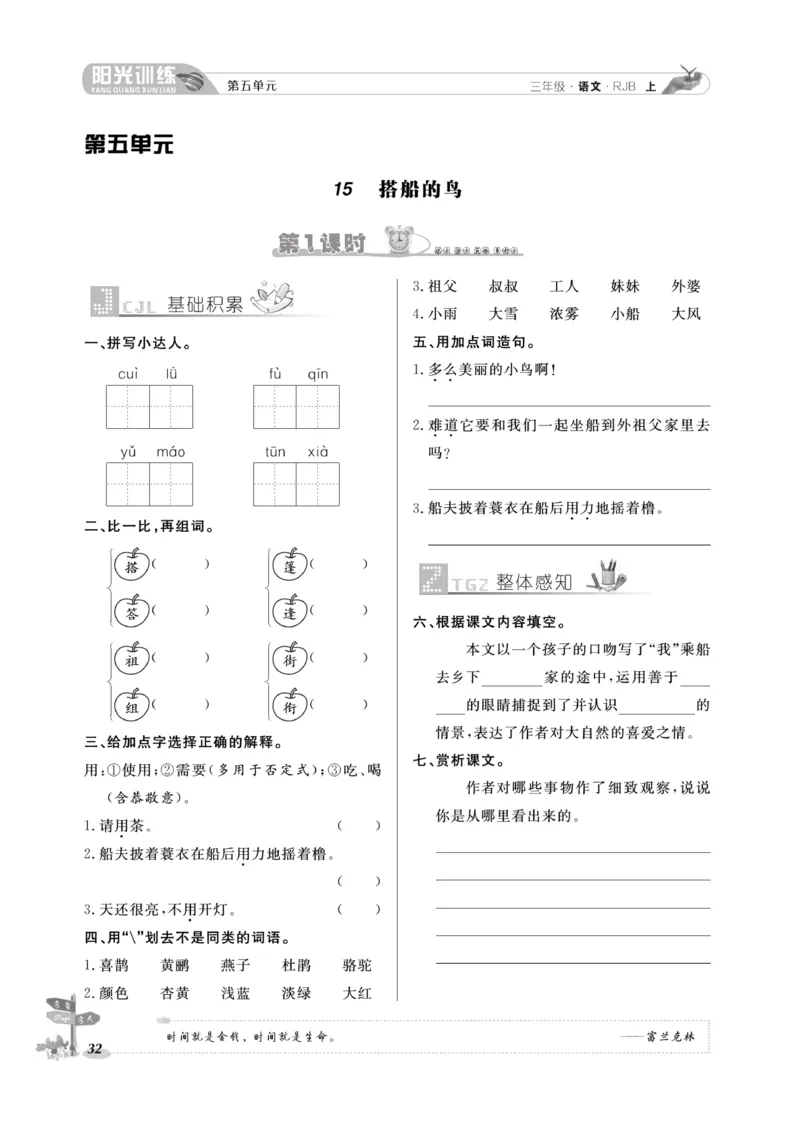 阳光训练
YANG GUANG XUN LIAN
第五单元
三年级·语文·RJB 上
第五单元
15 搭船的鸟
第1课时
J CJL 基础积累
一、拼写小达人。
cuì lǜ fù qīn
yǔ máo tūn xià
二、比一比,再组词。
搭( ) 篷( )
答( ) 逢( )
祖( ) 街( )
组( ) 衔( )
三、给加点字选择正确的解释。
用:①使用;②需要(多用于否定式);③吃、喝
(含恭敬意)。
1.请用茶。 ( )
2.船夫披着蓑衣在船后用力地摇着橹。
( )
3.天还很亮,不用开灯。 ( )
四、用“\”划去不是同类的词语。
1.喜鹊 黄鹂 燕子 杜鹃 骆驼
2.颜色 杏黄 浅蓝 淡绿 大红
3.祖父 叔叔 工人 妹妹 外婆
4.小雨 大雪 浓雾 小船 大风
五、用加点词造句。
1.多么美丽的小鸟啊!
2.难道它要和我们一起坐船到外祖父家里去
吗?
3.船夫披着蓑衣在船后用力地摇着橹。
Z TGZ 整体感知
六、根据课文内容填空。
本文以一个孩子的口吻写了“我”乘船
去乡下________家的途中,运用善于____
____的眼睛捕捉到了并认识__________的
情景,表达了作者对大自然的喜爱之情。
七、赏析课文。
作者对哪些事物作了细致观察,说说
你是从哪里看出来的。
名言
Page 名人
32
时间就是金钱,时间就是生命。 ——富兰克林